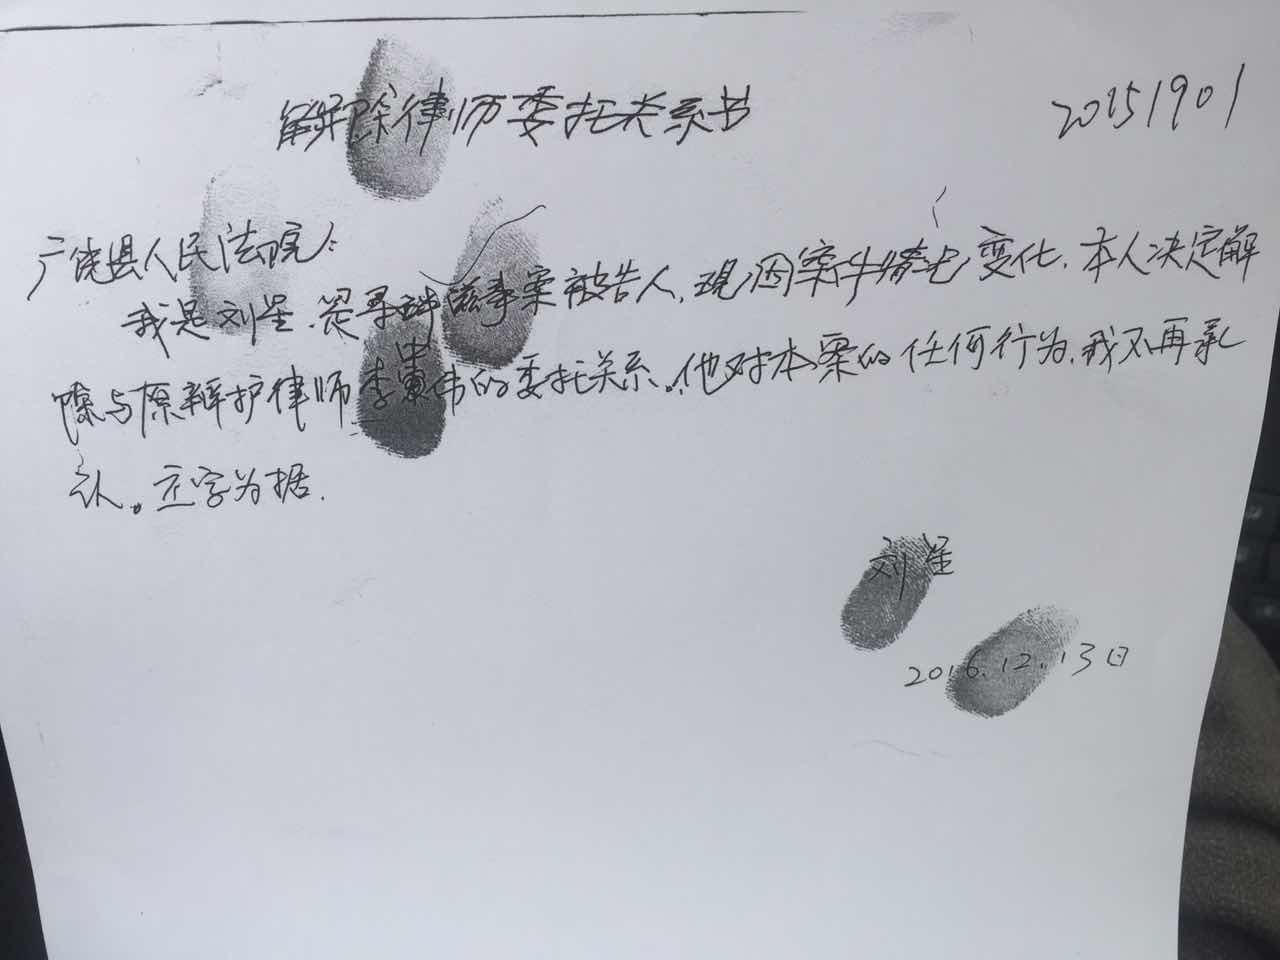 解除律师委托关系书
20151901
广饶县人民法院:
我是刘星.是寻衅滋事案被告人,现因案件情况变化.本人决定解
除与原辩护律师李 伟的委托关系.他对本案的任何行为,我不再承
认。立字为据.
刘星
2016.12.13日